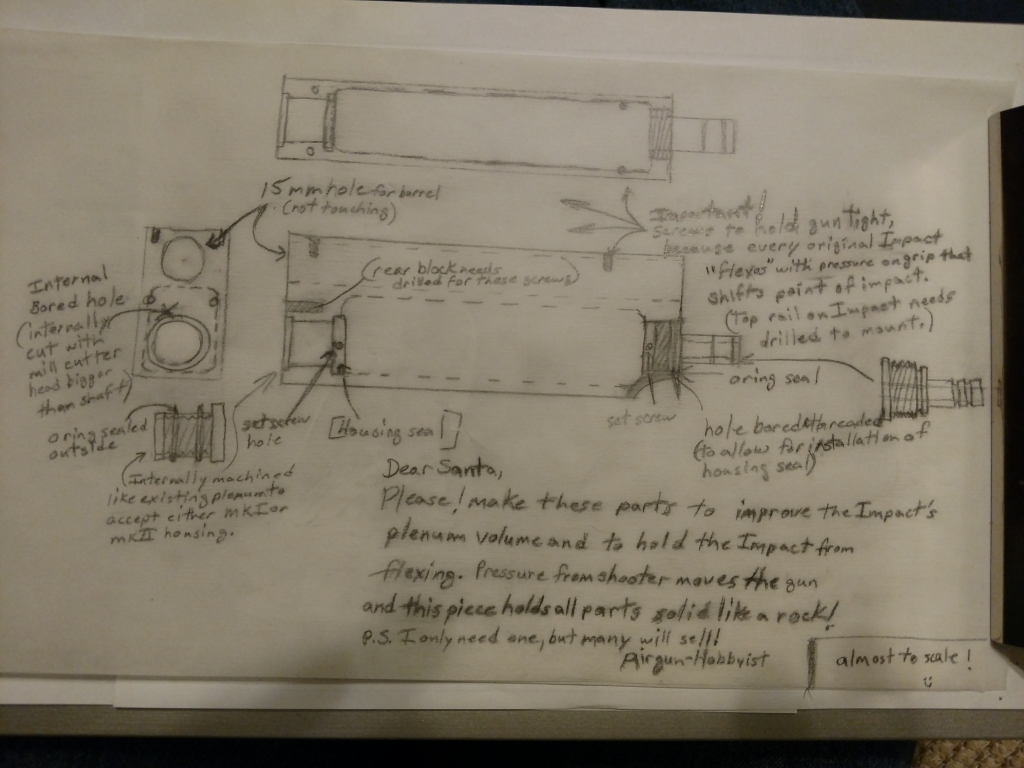 15mm hole for barrel
(not touching)
Important!
screws to hold gun tight,
because every original Impact
"flexes" with pressure on grip that
shifts point of impact.
(top rail on Impact needs
drilled to mount.)
(rear block needs
drilled for these screws)
Internal
Bored hole
(internally
cut with
mill cutter
head bigger
than shaft)
oring sealed
outside
set screw
hole
[Housing seal]
set screw
oring seal
hole bored & threaded
(to allow for installation of
housing seal)
(Internally machined
like existing plenum to
accept either mkI or
mkII housing.
Dear Santa,
Please! make these parts to improve the Impact's
plenum volume and to hold the Impact from
flexing. Pressure from shooter moves the gun
and this piece holds all parts solid like a rock!
P.S. I only need one, but many will sell!
Airgun-Hobbyist
almost to scale!